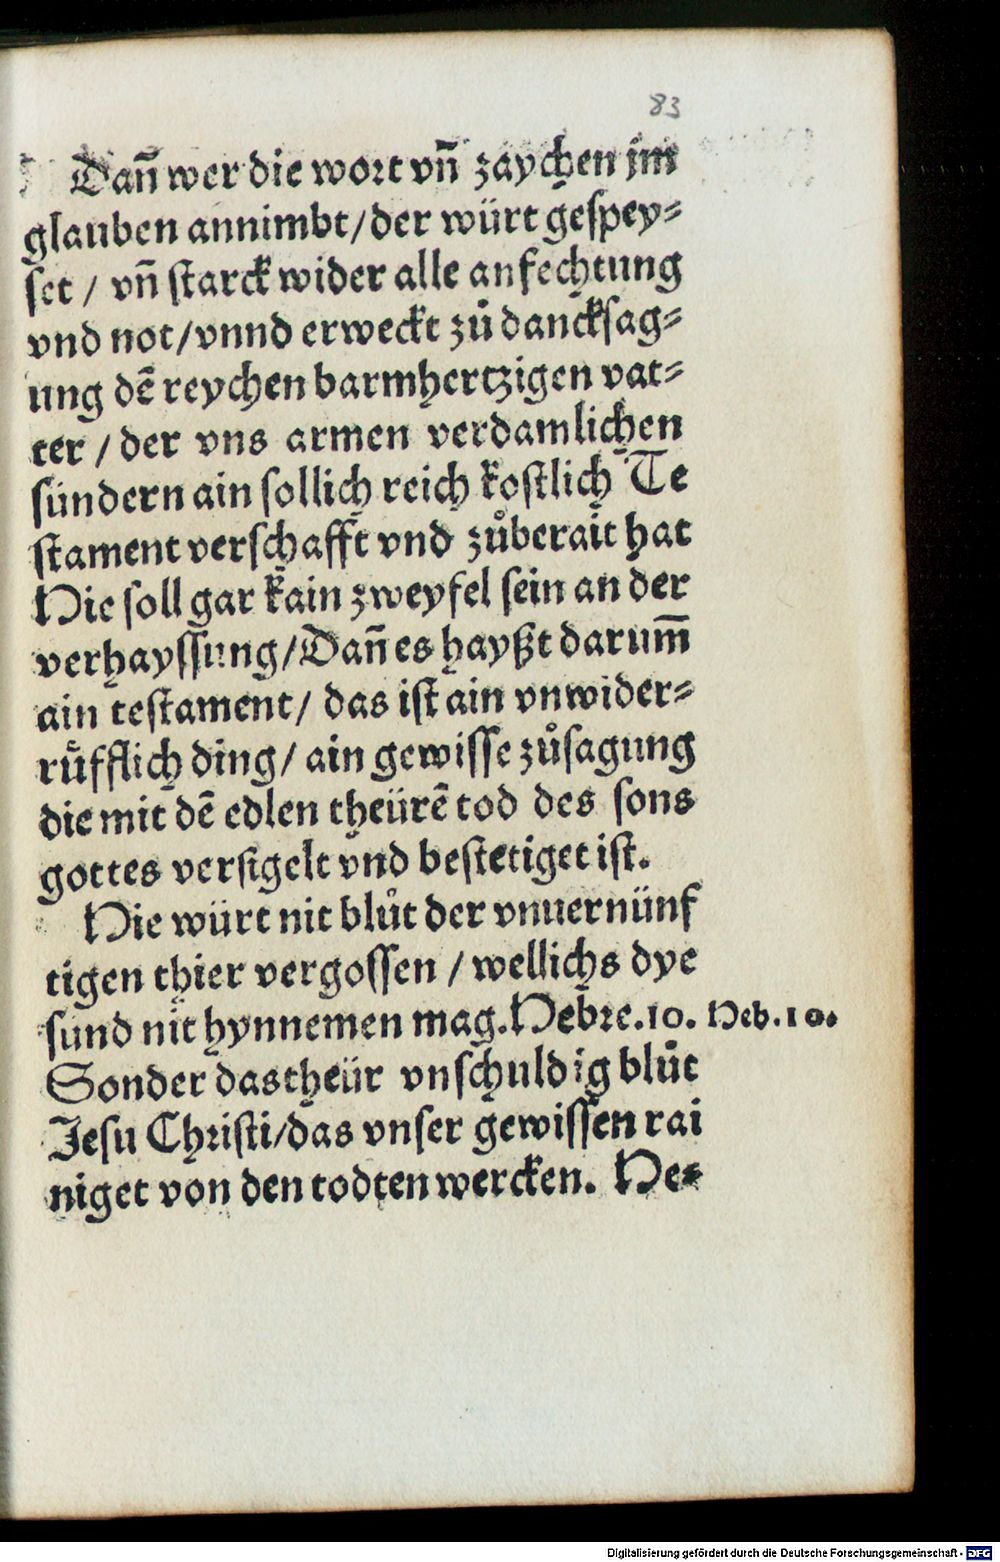 83
Dañ wer die wort vñ zaychen jm
glauben annimbt/der würt gespey⸗
set / vñ starck wider alle anfechtung
vnd not/vnnd erweckt zů dancksag⸗
ung dē reychen barmhertzigen vat⸗
ter / der vns armen verdamlichen
sündern ain sollich reich kostlich Te
stament verschafft vnd zůberait hat
Hie soll gar kain zweyfel sein an der
verhayssung/Dañ es hayßt darum̄
ain testament/ das ist ain vnwider⸗
růfflich ding/ ain gewisse zůsagung
die mit dē edlen theürē tod des sons
gottes versigelt vnd bestetiget ist.
Hie würt nit blůt der vnuernünf
tigen thier vergossen / wellichs dye
sünd nit hynnemen mag.Hebre.10. Heb.10.
Sonder das theür vnschuldig blůt
Jesu Christi/das vnser gewissen rai
niget von den todten wercken. He⸗
Digitalisierung gefördert durch die Deutsche Forschungsgemeinschaft - DFG